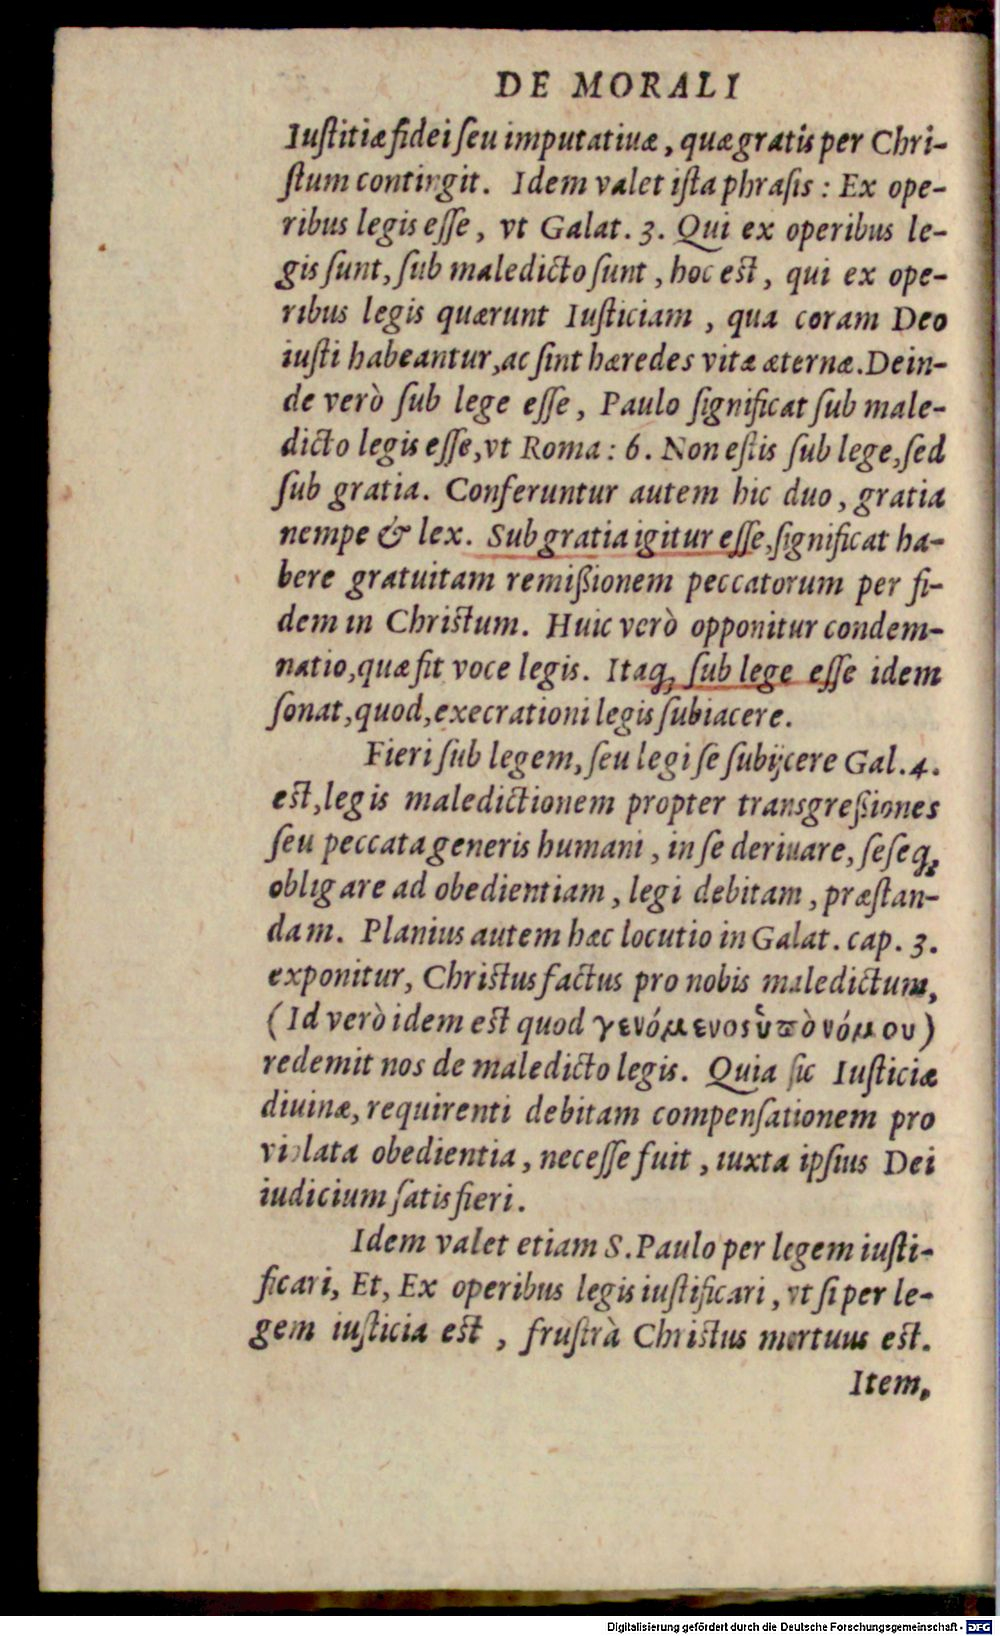 DE MORALI
Iuſtitiæ fidei ſeu imputatiuæ, quæ gratis per Chri-
ſtum contingit. Idem valet iſta phraſis: Ex ope-
ribus legis eſſe, vt Galat. 3. Qui ex operibus le-
gis ſunt, ſub maledicto ſunt, hoc est, qui ex ope-
ribus legis quærunt Iuſticiam, qua coram Deo
iuſti habeantur, ac ſint hæredes vitæ æternæ. Dein-
de verò ſub lege eſſe, Paulo ſignificat ſub male-
dicto legis eſſe, vt Roma: 6. Non eſtis ſub lege, ſed
ſub gratia. Conferuntur autem hic duo, gratia
nempe & lex. Sub gratia igitur eſſe, ſignificat ha-
bere gratuitam remißionem peccatorum per fi-
dem in Christum. Huic verò opponitur condem-
natio, quæ fit voce legis. Itaq́; ſub lege eſſe idem
ſonat, quod, execrationi legis ſubiacere.
Fieri ſub legem, ſeu legi ſe ſubijcere Gal. 4.
est, legis maledictionem propter transgreßiones
ſeu peccata generis humani, in ſe deriuare, ſeſeq́;
obligare ad obedientiam, legi debitam, præſtan-
dam. Planius autem hæc locutio in Galat. cap. 3.
exponitur, Christus factus pro nobis maledictum,
(Id verò idem est quod γενόμενος ὑπὸ νόμου)
redemit nos de maledicto legis. Quia ſic Iuſticiæ
diuinæ, requirenti debitam compenſationem pro
violata obedientia, neceſſe fuit, iuxta ipſius Dei
iudicium ſatisfieri.
Idem valet etiam S. Paulo per legem iuſti-
ficari, Et, Ex operibus legis iuſtificari, vt ſi per le-
gem iuſticia est, fruſtrà Christus mortuus est.
Item,
Digitalisierung gefördert durch die Deutsche Forschungsgemeinschaft - DFG